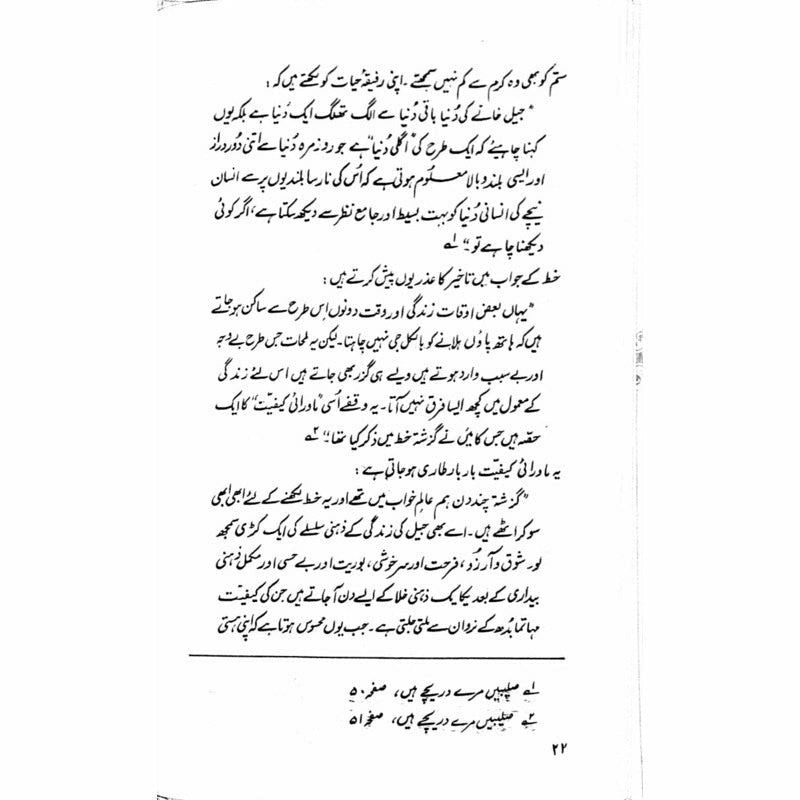 ستم کو بھی وہ کرم سے کم نہیں سمجھتے ۔ اپنی رفیقۂ حیات کو لکھتے ہیں کہ :
"جیل خانے کی دُنیا باقی دُنیا سے الگ تھلگ ایک دُنیا ہے بلکہ یوں
کہنا چاہیئے کہ ایک طرح کی "اگلی دُنیا" ہے جو روزمرہ دُنیا سے اتنی دُور دراز
اور ایسی بلند و بالا معلوم ہوتی ہے کہ اُس کی نارسا بلندیوں پر سے انسان
نیچے کی انسانی دُنیا کو بہت بسیط اور جامع نظر سے دیکھ سکتا ہے، اگر کوئی
دیکھنا چاہے تو ۔" ۱ے
خط کے جواب میں تاخیر کا عذر یوں پیش کرتے ہیں :
"یہاں بعض اوقات زندگی اور وقت دونوں اس طرح سے ساکن ہو جاتے
ہیں کہ ہاتھ پاؤں ہلانے کو بالکل جی نہیں چاہتا ۔ لیکن یہ لمحات جس طرح بے وجہ
اور بے سبب وارد ہوتے ہیں ویسے ہی گزر بھی جاتے ہیں اس لئے زندگی
کے معمول میں کچھ ایسا فرق نہیں آتا ۔ یہ وقفے اُسی "ماورائی کیفیّت" کا ایک
حصّہ ہیں جس کا میں نے گزشتہ خط میں ذکر کیا تھا ۔" ۲ے
یہ ماورائی کیفیّت بار بار طاری ہو جاتی ہے :
"گزشتہ چند دن ہم عالمِ خواب میں تھے اور یہ خط لکھنے کے لئے ابھی ابھی
سو کر اٹھے ہیں ۔ اسے بھی جیل کی زندگی کے ذہنی سلسلے کی ایک کڑی سمجھ
لو۔ شوق و آرزُو، فرحت اور سرخوشی، بوریت اور بے حسی اور مکمل ذہنی
بیداری کے بعد یکایک ذہنی خلا کے ایسے دن آ جاتے ہیں جن کی کیفیّت
مہاتما بُدھ کے نروان سے ملتی جلتی ہے ۔ جب یوں محسوس ہوتا ہے کہ اپنی ہستی
۱ے صلیبیں مرے دریچے ہیں، صفحہ ۵۰
۲ے صلیبیں مرے دریچے ہیں، صفحہ ۵۱
۲۲